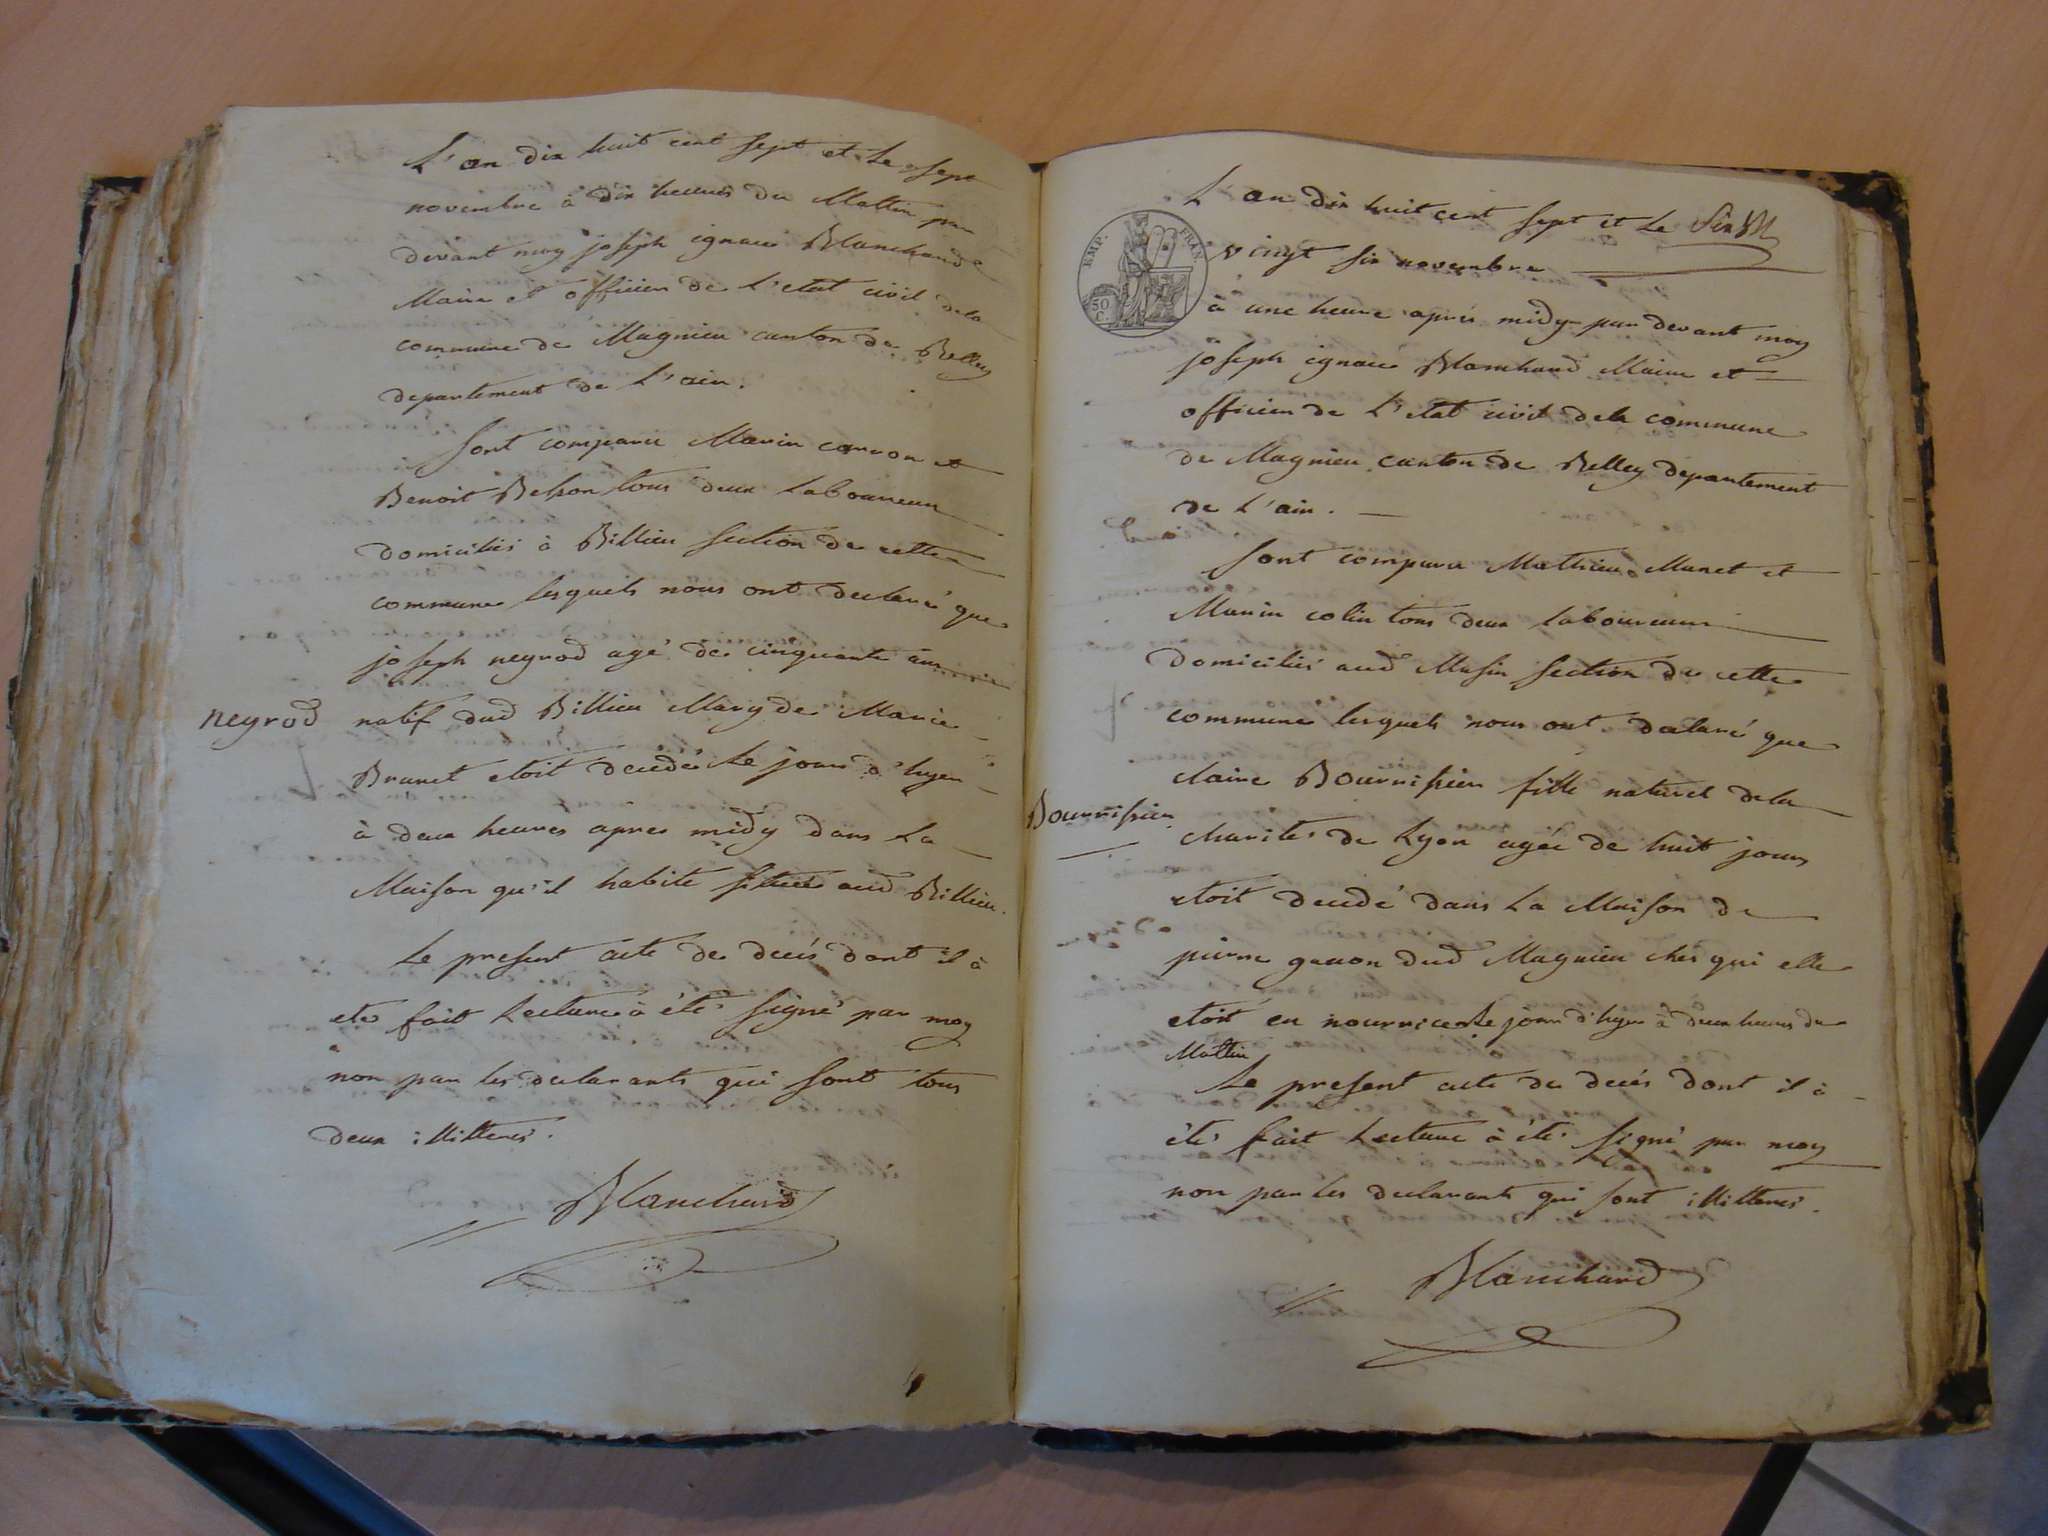 L'an dix huit cent sept et le sept
novembre à dix heures du Mattin par
devant moy joseph ignace Blanchard
Maire et officier de l'etat civil dela
commune de Magnieu canton de Belley
departement de l'ain.
Sont comparu Marin carron et
Benoit Belson tous deux laboureur
domiciliés à Billieu section de cette
commune lesquels nous ont declaré que
joseph neyrod agé de cinquante ans
neyrod
natif dud Billieu Mary de Marie
Brunet etoit decedé le jour d'hyer
à deux heures apres midy dans la
Maison qu'il habite située aud Billieu.
Le present acte de decés dont il à
eté fait lecture à été signé par moy
non par les declarants qui sont tous
deux illitterés.
Blanchard
L'an dix huit cent sept et le
vingt six novembre
EMP. FRAN.
50 C.
à une heure aprés midy par devant moy
joseph ignace Blanchard Maire et
officier de l'etat civil dela commune
de Magnieu canton de Belley departement
de l'ain.
Sont comparu Mathieu Munet et
Marin colin tous deux laboureurs
domiciliés aud Musin section de cette
commune lesquels nous ont declaré que
claire Bournisien fille naturel dela
Bournisien
charité de Lyon agée de huit jours
etoit decedé dans la Maison de
pierre dud Magnieu chés qui elle
etoit en nourrice le jour d'hyer à deux heures du
Mattin
Le present acte de decés dont il à
été fait lecture à été signé par moy
non par les declarants qui sont illitterés.
Blanchard